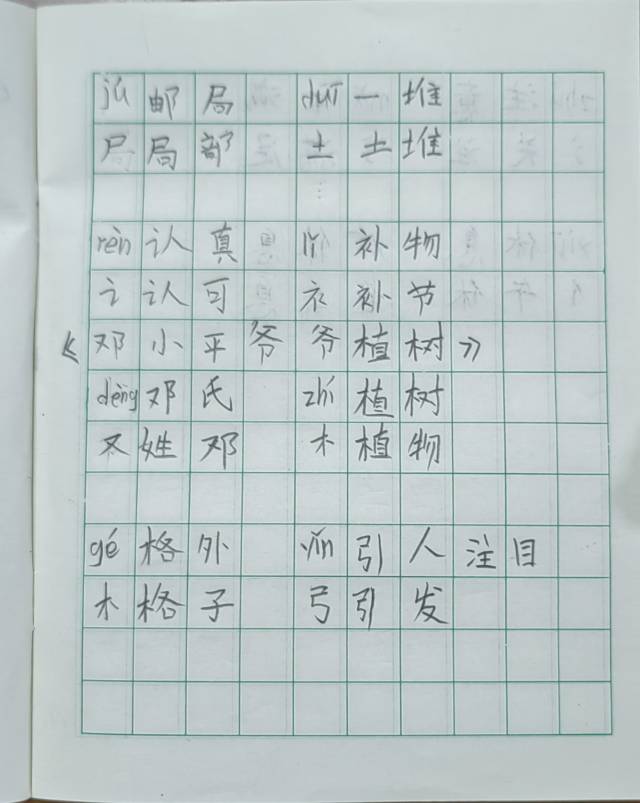 jú 邮局 duī 一堆
尸 局部 土 土堆
rèn 认真 补物
讠 认可 衤 补节
《邓小平爷爷植树》
dèng 邓氏 zhí 植树
又 姓邓 木 植物
gé 格外 yǐn 引人注目
木 格子 弓 引发